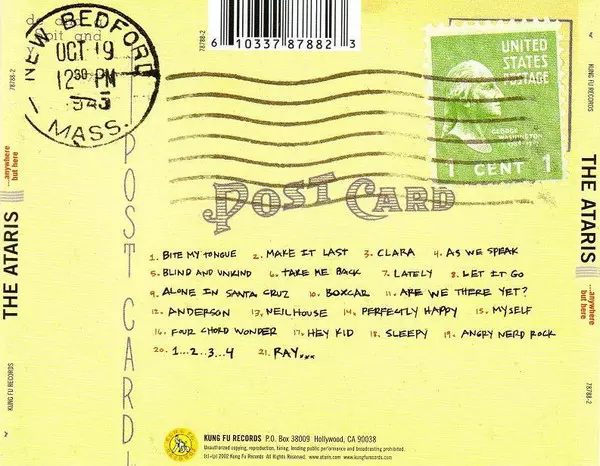 6 10337 87882 3
78788-2
NEW BEDFORD
OCT 19
12 30 PM
1943
MASS.
UNITED
STATES
POSTAGE
GEORGE
WASHINGTON
1 CENT 1
POST CARD
POST CARD
1. BITE MY TONGUE 2. MAKE IT LAST 3. CLARA 4. AS WE SPEAK
5. BLIND AND UNKIND 6. TAKE ME BACK 7. LATELY 8. LET IT GO
9. ALONE IN SANTA CRUZ 10. BOXCAR 11. ARE WE THERE YET?
12. ANDERSON 13. NEILHOUSE 14. PERFECTLY HAPPY 15. MYSELF
16. FOUR CHORD WONDER 17. HEY KID 18. SLEEPY 19. ANGRY NERD ROCK
20. 1...2...3...4 21. RAY...
KUNG FU RECORDS P.O. Box 38009 Hollywood, CA 90038
Unauthorized copying, reproduction, hiring, lending public performance and broadcasting prohibited.
(c)+(p) 2002 Kung Fu Records All Rights Reserved. www.ataris.com www.kungfurecords.com
78788-2
THE ATARIS
...anywhere
but here
KUNG FU RECORDS
KUNG FU RECORDS
THE ATARIS
...anywhere
but here
78788-2